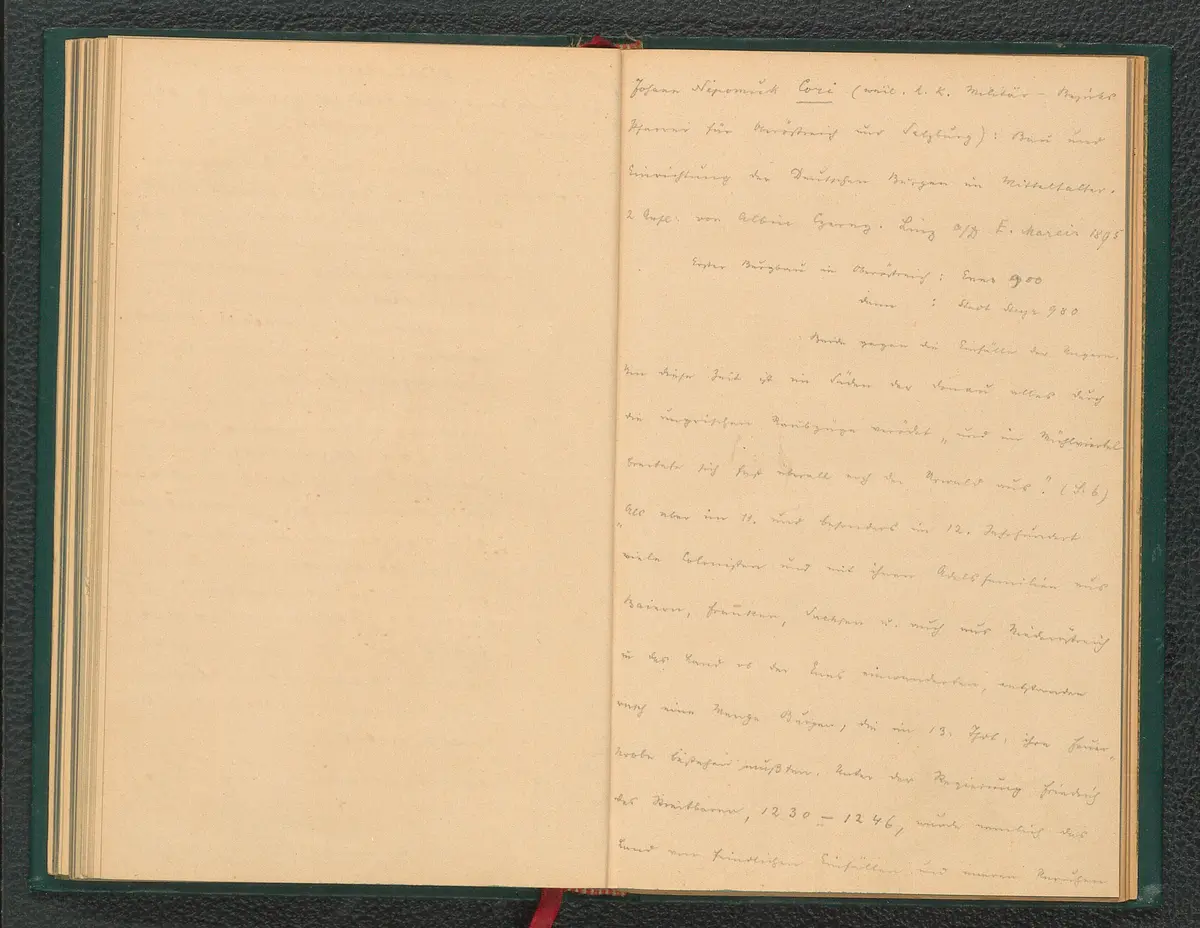 Johann Nepomuk Cori (weil. k. k. Militär-Bezirks
Pfarrer für Oberöstreich und Salzburg): Bau und
Einrichtung der Deutschen Burgen im Mittelalter.
2 Aufl. von Albin Czerny. Linz a/D F. Mareis 1895
Erster Burgbau in Oberöstreich: Enns 900
dann : Stadt Steyr 980
Beide gegen die Einfälle der Ungarn.
Um diese Zeit ist im Süden der Donau alles durch
die ungrischen Raubzüge verödet „und im Mühlviertel
breitete sich fast überall noch der Urwald aus." (S. 6)
„Als aber im 11. und besonders im 12. Jahrhundert
viele Colonisten und mit ihnen Adelsfamilien aus
Baiern, Franken, Sachsen u. auch aus Niederöstreich
in das Land ob der Enns einwanderten, entstanden
rasch eine Menge Burgen, die im 13. Jhrh. ihre Feuer„
probe bestehen mußten. Unter der Regierung Friedrich
des Streitbaren, 1230–1246, wurde nemlich das
Land von feindlichen Einfällen und inneren Unruhen